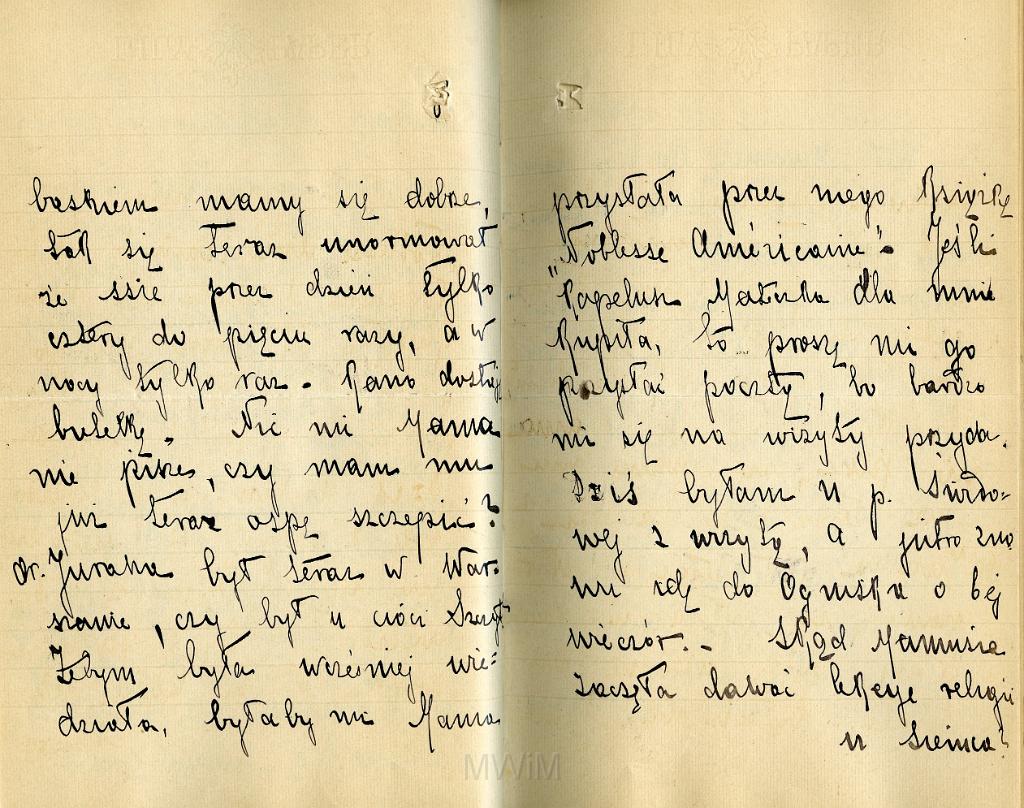 baskiem mamy się dobrze,
tak się teraz unormował
że ssie przez dzień tylko
cztery do pięciu razy, a w
nocy tylko raz. Rano dostaje
butelkę. Nic mi Mama
nie pisze, czy mam mu
już teraz ospę szczepić?
dr. Juraha był teraz w War-
szawie, czy był u cioci
Żebym była wcześniej wie=
działa, byłaby mi Mama
przysłała przez niego książkę
„Noblesse Américaine". Jeśli
kapelusz Mateczka dla mnie
kupiła, to proszę mi go
przysłać pocztą, bo bardzo
mi się na wizyty przyda.
Dziś byłam u p.
wej z wizytą, a jutro znów
idę do Ogniska o 6ej
wieczór. - Skąd Mamusia
zaczęła dawać lekcye religii
u
MWiM